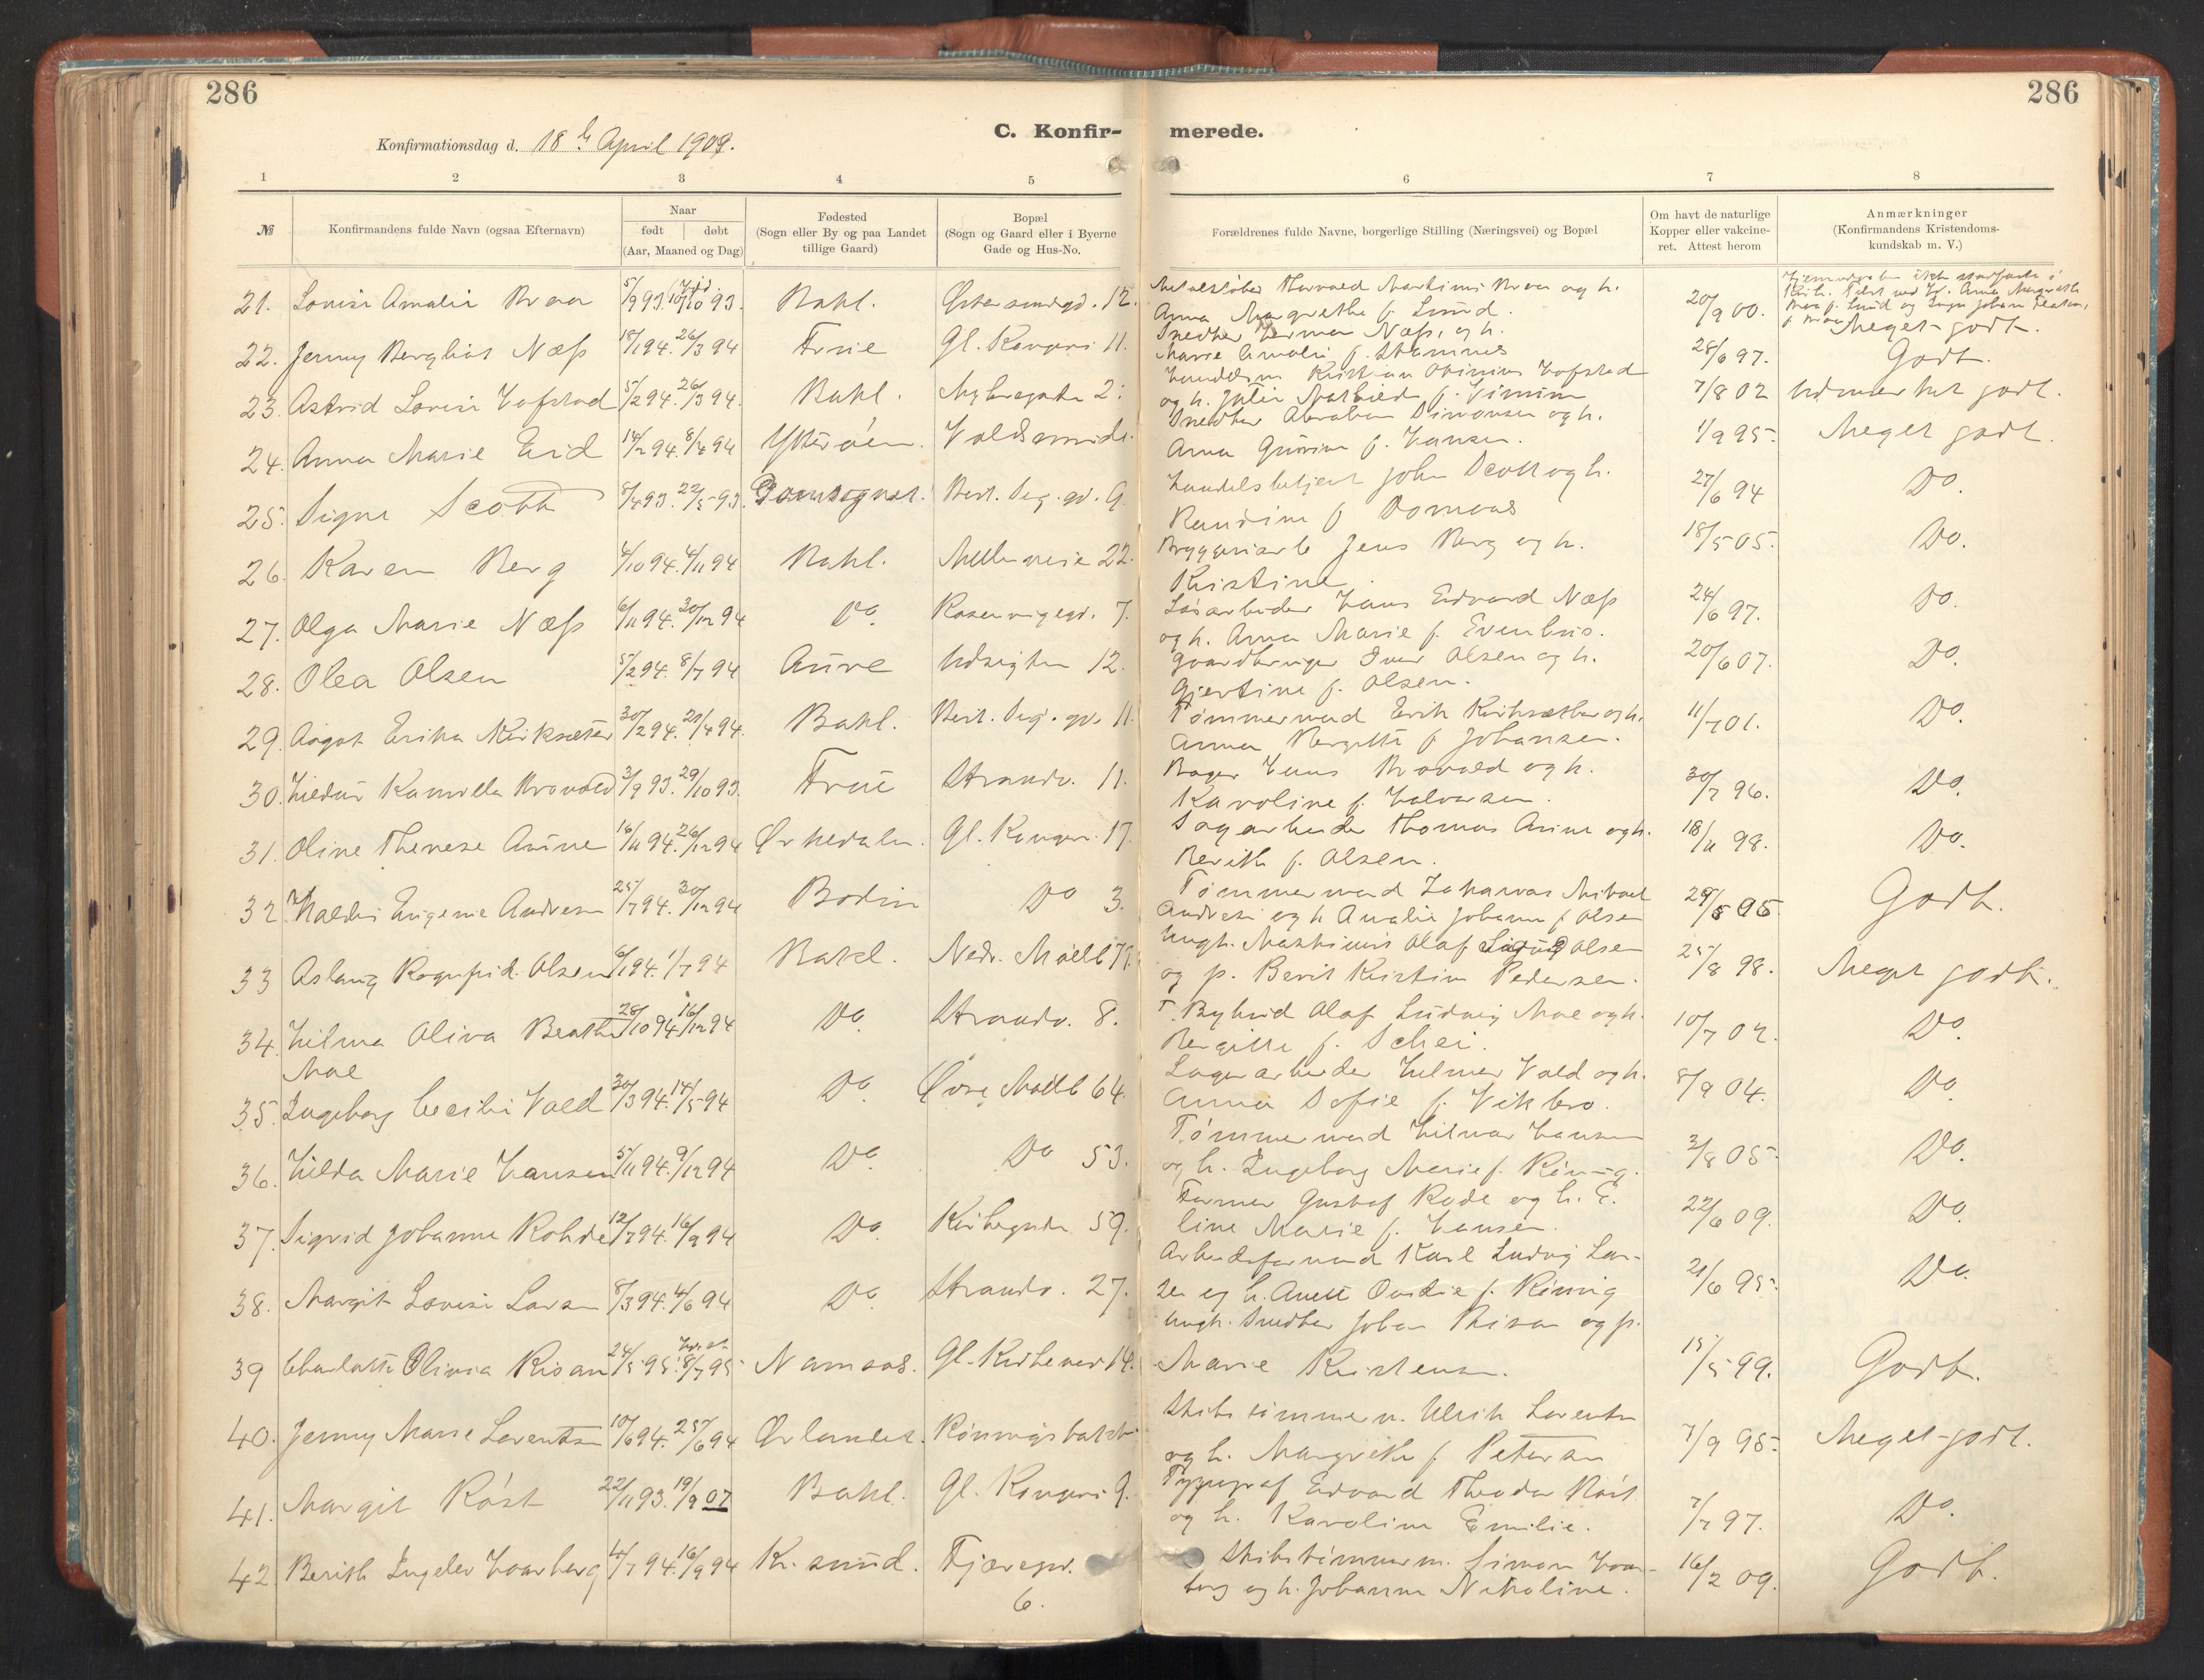 286
286
C. Konfir-
merede.
Konfirmationsdag d. 18de April 1909.
1 2 3 4 5 6 7 8
№
Konfirmandens fulde Navn (ogsaa Efternavn)
Naar
født døbt
(Aar, Maaned og Dag)
Fødested
(Sogn eller By og paa Landet
tillige Gaard)
Bopæl
(Sogn og Gaard eller i Byerne
Gade og Hus-No.
Forældrenes fulde Navne, borgerlige Stilling (Næringsvei) og Bopæl
Om havt de naturlige
Kopper eller vakcine-
ret. Attest herom
Anmærkninger
(Konfirmandens Kristendoms-
kundskab m. V.)
21. Lovise Amalie Braa 5/9 93. 10/10 93. Bakl. Østersundsgd. 12. Harvald Martinus Braa og h. 20/9 00.
Anna Margrethe f. Lund. Meget godt.
22. Jenny Bergliot Næss 18/1 94. 26/3 94 Frue Gl. Kongevei 11. Snedker Herman Næss, og h. 28/6 97. Godt.
Marie Amalie f. Stamnes
23. Astrid Lovise Hofstad 5/2 94. 26/3 94. Bakl. Nybrogaden 2. Kristian Hofstad 7/8 02 Udmerket godt.
og h. Julie
24. Anna Marie Eid 14/2 94. 8/4 94 Ytterøen. Voldsminde. Snedker Abraham Simonsen og h. 1/9 95. Meget godt.
Anna Gurine f. Hansen.
25. Signe Scott 5/4 93. 22/5 93. Domsognet. Berit. Seg. gd. 9. Handelsbetjent John Scott og h. 27/6 94 Do.
Randine f. Domaas
26. Karen Berg 4/10 94. 4/11 94 Bakl. Mellemveie 22. Bryggeriarb. Jens Berg og h. 18/5 05. Do.
Kristine.
27. Olga Marie Næss 6/11 94. 30/12 94 Do. Rosenvigegd. 7. Løsarbeider Hans Edvard Næss 24/6 97. Do.
og h. Anna Marie f. Evenhus.
28. Olea Olsen 5/2 94. 8/7 94 Aure Udsigten 12. Gaardbruger Iver Olsen og h. 20/6 07. Do.
Gjertine f. Olsen.
29. Aagot Erika Kirksæter 30/2 94. 21/4 94. Bakl. Berit. Seg. gd. 11. Tømmermand Erik Kirksæther og h. 11/7 01. Do.
Anna Bergitte f. Johansen.
30. Hildur Kamilla Brovold 3/9 93. 29/10 93. Frue Strandv. 11. Bager Hans Brovold og h. 30/7 96. Do.
Karoline f. Halvorsen.
31. Oline Therese Aune 16/11 94. 26/12 94 Ørkedalen. Gl. Kongev. 17. Sagarbeider Thomas Aune og h. 18/11 98. Do.
Berith f. Olsen.
32. Eugenie Andresen 25/7 94. 30/12 94 Bodin Do 3. Tømmermand Zakarias Mikael 29/5 95 Godt.
Andresen og h. Amalie Johanna f. Olsen
33 Aslaug Ragnfrid Olsen 6/1 94. 1/7 94 Bakl. Nedr. Møllb 71. Ungk. Martinius Olaf Olsen 25/8 98. Meget godt.
og p. Berit Kirstine Pedersen.
34. Hilma Oliva Beathe 28/10 94. 16/12 94 Do. Strandv. 8. Olaf Ludvig Moe og h. 10/7 02. Do.
Moe
Bergitte f. Schei.
35. Ingeborg Cecilie Vold 30/3 94. 14/5 94 Do. Øvre Møllb 64. Lagerarbeider Helmer Vold og h. 8/9 04. Do.
Anna Sofie f. Vikbro.
36. Hilda Marie Hansen 5/11 94. 9/12 94 Do. Do 53. Tømmermand Hilmar Hansen 3/8 05. Do.
og h. Ingeborg Marie f. Rønnig.
37. Sigrid Johanne Rohde 12/7 94. 16/9 94 Do. Kirkegaden 59. Former Gustaf Rode og h. E- 22/6 09. Do.
line Marie f. Hansen.
38. Margit Lovise Larsen 8/3 94. 4/6 94 Do. Strandv. 27. Arbeidsformand Karl Ludvig Lar- 21/6 95. Do.
sen og h. Anette Ovidie f. Rønnig
39 Charlotte Olivia Risan 24/5 95. 8/7 95 Namsos. Gl. Kirkevei 14. Ungk. Snedker Johan Risan og p. 15/5 99. Godt.
Marie Kristensen.
40. Jenny Marie Lorentsen 10/6 94. 25/6 94 Ørlandet. Rønnigsbakken Skibstømmerm. Ulrik Lorentsen 7/9 95. Meget godt.
og h. Margrethe f. Petersen
41. Margit Røst 22/11 93. 19/9 07 Bakl. Gl. Kongevei 9. Typograf Edvard Theodor Røst 7/7 97. Do.
og h. Karoline Emilie.
42. Berith Ingelev Haarberg 4/7 94. 16/9 94 Kr. sund. Fjæregd. Skibstømmerm. Simon Haar- 16/2 09. Godt.
6. berg og h. Johanna Nikoline.